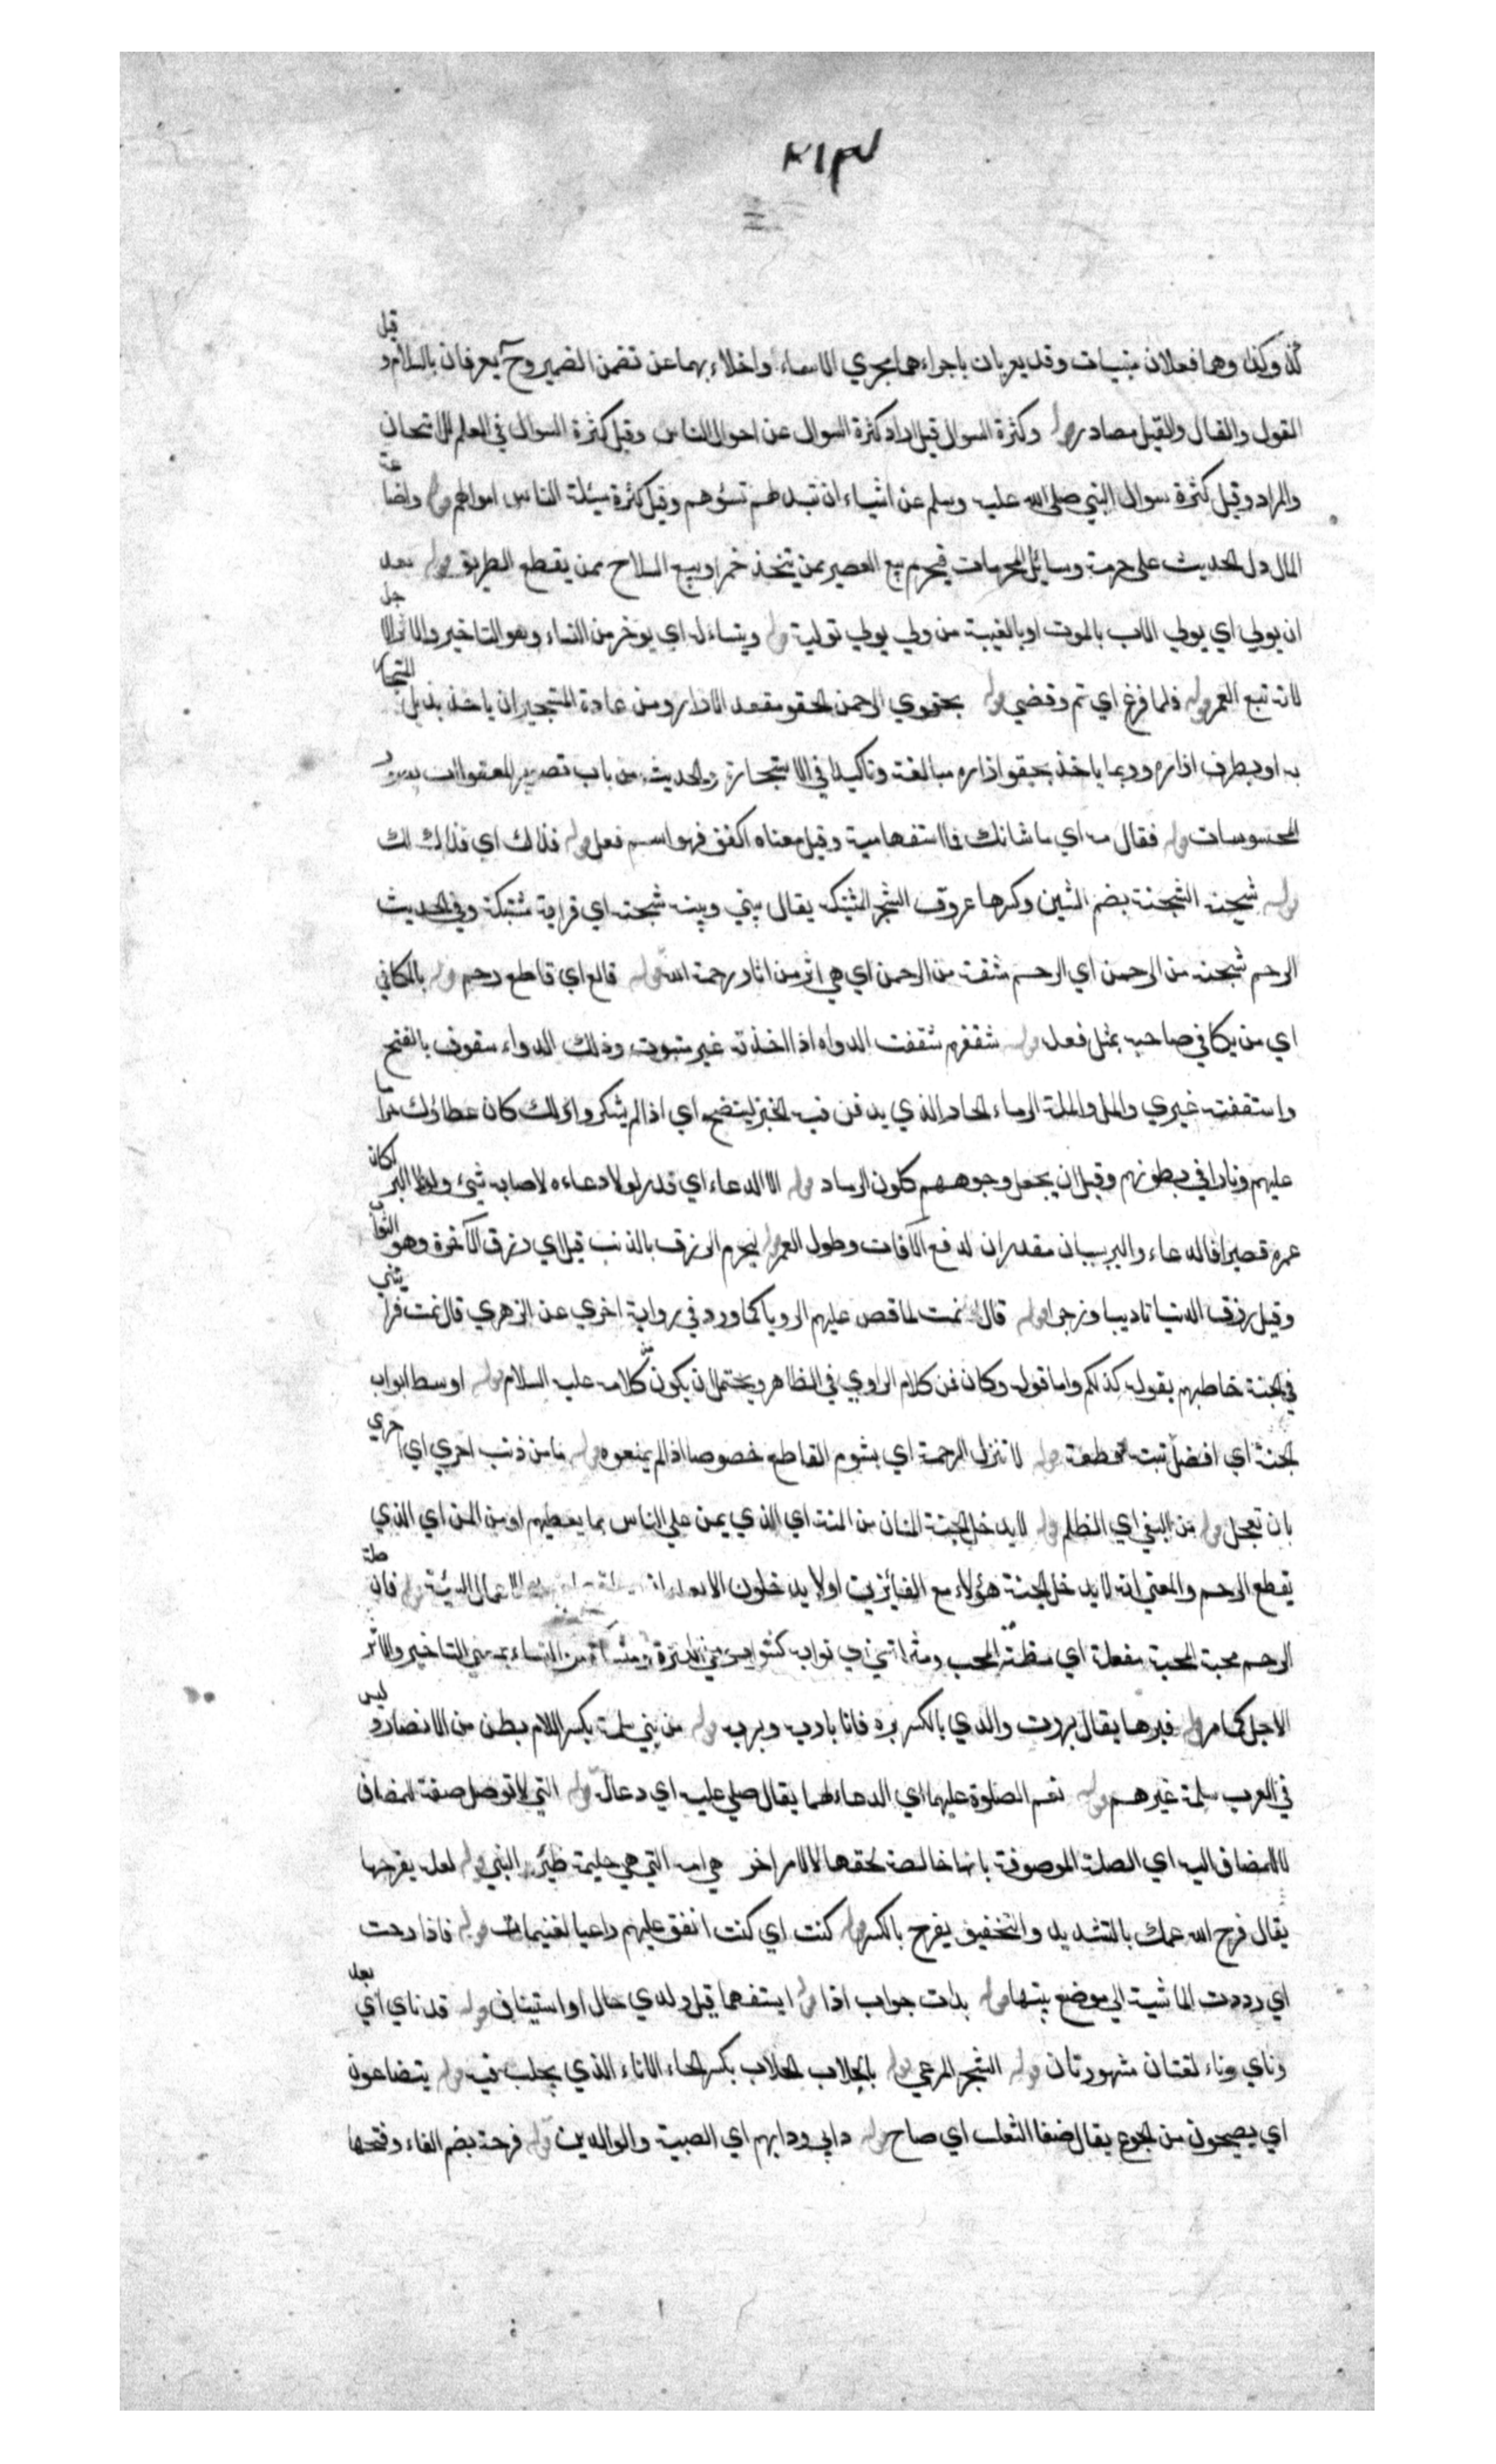 ٣١٣
كذا وكذا وهما فعلان مبنيان وقد يعربان باجراءهما مجري الاسماء واخلاءهما عن تضمن الضمير وح يعرفان باللام وقيل
القول والقال والقيل مصادر قوله وكثرة السوال قيل اراد كثرة السوال عن احوال الناس وقيل كثرة السوال في العلم للامتحان
والمراد وقيل كثرة سوال النبي صلى الله عليه وسلم عن اشياء ان تبد لهم تسؤهم وقيل كثرة سئلة الناس اموالهم قوله واضاعة
المال دل الحديث على حرمة وسائل المحرمات فيحرم بيع العصير ممن يتخذ خمرا وبيع السلاح ممن يقطع الطريق قوله بعد
ان يولي اي يولي الاب بالموت او بالغيبة من ولي يولي تولية قوله وينساء له اي يوخر من النساء وهو التاخير والاثر الاجل
لانه تبع العمر قوله فلما فرغ اي تم وقضي قوله بحقوي الرحمن الحقو مقعد الازار ومن عادة المستجير ان ياخذ بذيل المستجار
به او بطرف ازاره وربما ياخذ بحقو ازاره مبالغة وتاكيدا في الاستجارة والحديث من باب تصوير المعقولات بصور
المحسوسات قوله فقال مه اي ما شانك فما استفهامية وقيل معناه اكفف فهو اسم فعل قوله فذلك اي فذلك لك
قوله شجنة الشجنة بضم الشين وكسرها عروق الشجر المشتبك يقال بيني وبينه شجنة اي قرابة مشتبكة وفي الحديث
الرحم شجنة من الرحمن اي الرحم مشتقة من الرحمن اي هي اثر من اثار رحمة الله قوله قاطع اي قاطع رحم قوله بالمكافي
اي من يكافي صاحبه بمثل فعله قوله سففت الدواء اذا اخذته غير ملتوت وذلك الدواء سفوف بالفتح
واستففته غيري والمل والملة الرماد الحار الذي يدفن فيه الخبز لينضج اي اذا لم يشكروا ذلك كان عطاؤك حراما
عليهم ونارا في بطونهم وقيل ان يجعل وجوههم كلون الرماد قوله الا الدعاء اي قدر لولا دعاءه لاصابه شيء ولولا البر لكان
عمره قصيرا فالدعاء والبر سببان مقدران لدفع الآفات وطول العمر قوله ليحرم الرزق بالذنب قيل اي رزق الآخرة وهو الثواب
وقيل رزق الدنيا تاديبا وزجرا قوله قال نمت لما قص عليهم الرويا كما ورد في رواية اخري عن الزهري قال نمت فرايتني
في الجنة خاطبهم بقوله كذلكم واما قوله وكان فمن كلام الراوي في الظاهر ويحتمل ان يكون من كلامه عليه السلام قوله اوسط ابواب
الجنة اي افضل قوله لا تنزل الرحمة اي بشوم القاطع خصوصا اذا لم يمنعوه قوله ما من ذنب احري اي احري
بان تعجل قوله من البغي اي الظلم قوله لا يدخل الجنة المنان من المنة اي الذي يمن على الناس بما يعطيهم او من المن اي الذي
يقطع الرحم والمعنى انه لا يدخل الجنة هؤلاء مع الفائزين او لا يدخلون الا بعد الاعمال السيئة قوله فان صلة
الرحم محبة المحبة مفعلة اي مظنة المحب ومثراة من النساء بمعنى التاخير والاثر
الاجل كما مر قوله فبرها يقال بررت والدي بالكسر بره فانا بار به وبر به قوله من بني سلمة بكسر اللام بطن من الانصار وليس
في العرب سلمة غيرهم قوله نعم الصلوة عليهما اي الدعاء لهما يقال صلى عليه اي دعا له قوله التي لا توصل صفة المضاف
لا للمضاف اليه اي الصلة الموصوفة بانها خالصة لحقها لا لامر اخر هي امه التي هي حليمة ظئر النبي قوله لعله يفرجها
يقال فرج الله غمك بالتشديد والتخفيف يفرج بالكسر قوله كنت اي كنت انفق عليهم راعيا لغنيمات قوله فاذا رحت
اي رددت الماشية الى موضع مبيتها قوله بدات جواب اذا قوله اسقيهما قبل ولدي حال او استيناف قوله قد ناي اي بعد
وناي وناء لغتان مشهورتان قوله الشجر المرعي قوله بالحلاب الحلاب بكسر الحاء الاناء الذي يحلب فيه قوله يتضاغون
اي يصيحون من الجوع يقال ضغا الثعلب اي صاح قوله دابي ودابهم اي الصبية والوالدين قوله فرجة بضم الفاء وفتحها